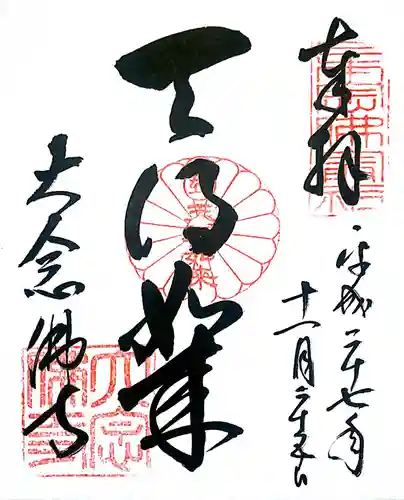 奉拝
平成二十七年
十一月二十五日
天得如来
大念佛寺